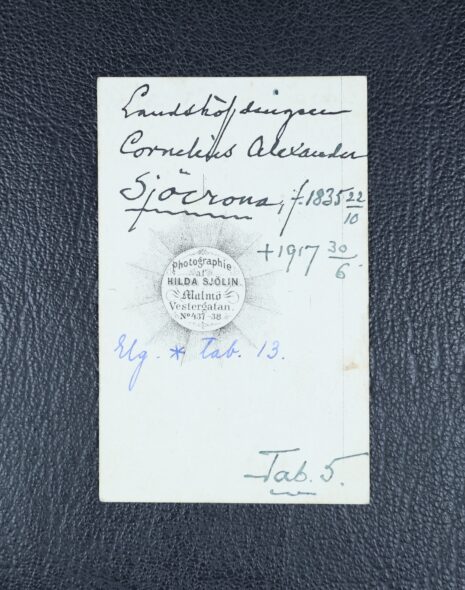 Landshöfdingen
Cornelius Alexander
Sjöcrona, f. 1835 22/10
+ 1917 30/6
Photographie
af
HILDA SJÖLIN.
Malmö
Vestergatan.
No 437-38
Elg. * Tab. 13.
Tab. 5.